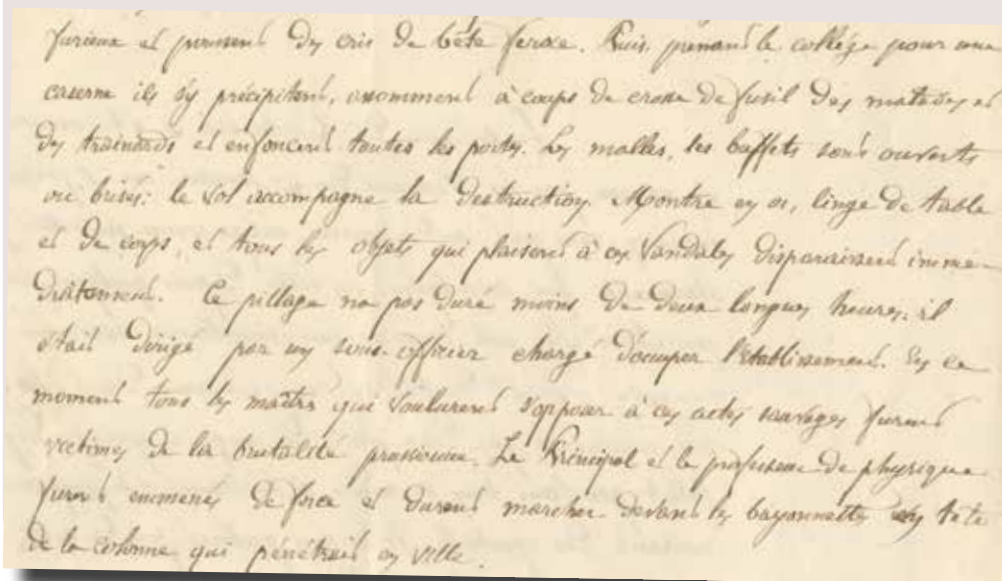 furieux et poussent des cris de bête feroce. Puis, prenant le collège pour une
caserne ils s'y précipitent, assomment à coups de crosse de fusil des malades et
des trainards et enfoncent toutes les portes. Les malles, les buffets sont ouverts
ou brisés: le vol accompagne la destruction. Montre en or, linge de table
et de corps, et tous les objets qui plaisent à ces Vandales disparaissent immé-
diatement. Ce pillage n'a pas duré moins de deux longues heures; il
était dirigé par un sous-officier chargé d'occuper l'Etablissement. En ce
moment tous les maîtres qui voulurent s'opposer à ces actes sauvages furent
victimes de la brutalité prussienne. Le Principal et le professeur de physique
furent emmenés de force et durent marcher devant les bayonnettes en tête
de la colonne qui pénétrait en ville.